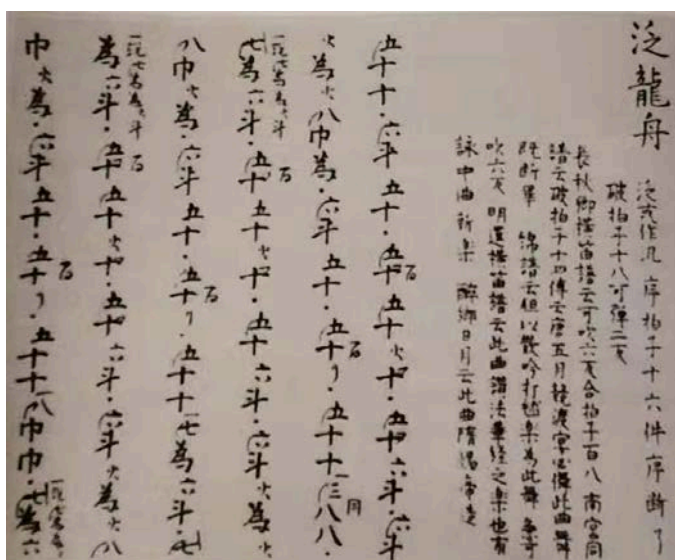 泛龍舟
泛或作汎 序拍子十六件序断了
破拍子十八可弾二反
長秋卿横笛譜云可吹六反合拍子百八南宮同
譜云破拍子十四傳云唐五月競渡必儛此曲舞
既断畢 綿譜云但以散吟打毬樂為此舞
吹六反 明暹横笛譜云此曲謂法華経之樂也有
詠中曲新樂 酔郷日月云此曲隋煬帝造
五十十・六斗五十・五十五十火十・五十六斗・六斗
火為火八巾為・六斗五十・五十・五十十一三八八・
七為六斗・五十五十火十・五十六斗・六斗火為火
八巾火為・六斗五十・五十・五十十一七為六斗・七
為六斗・五十五十火十・五十六斗・六斗火為火八
巾火為・六斗五十・五十・五十十一八巾巾・七為六